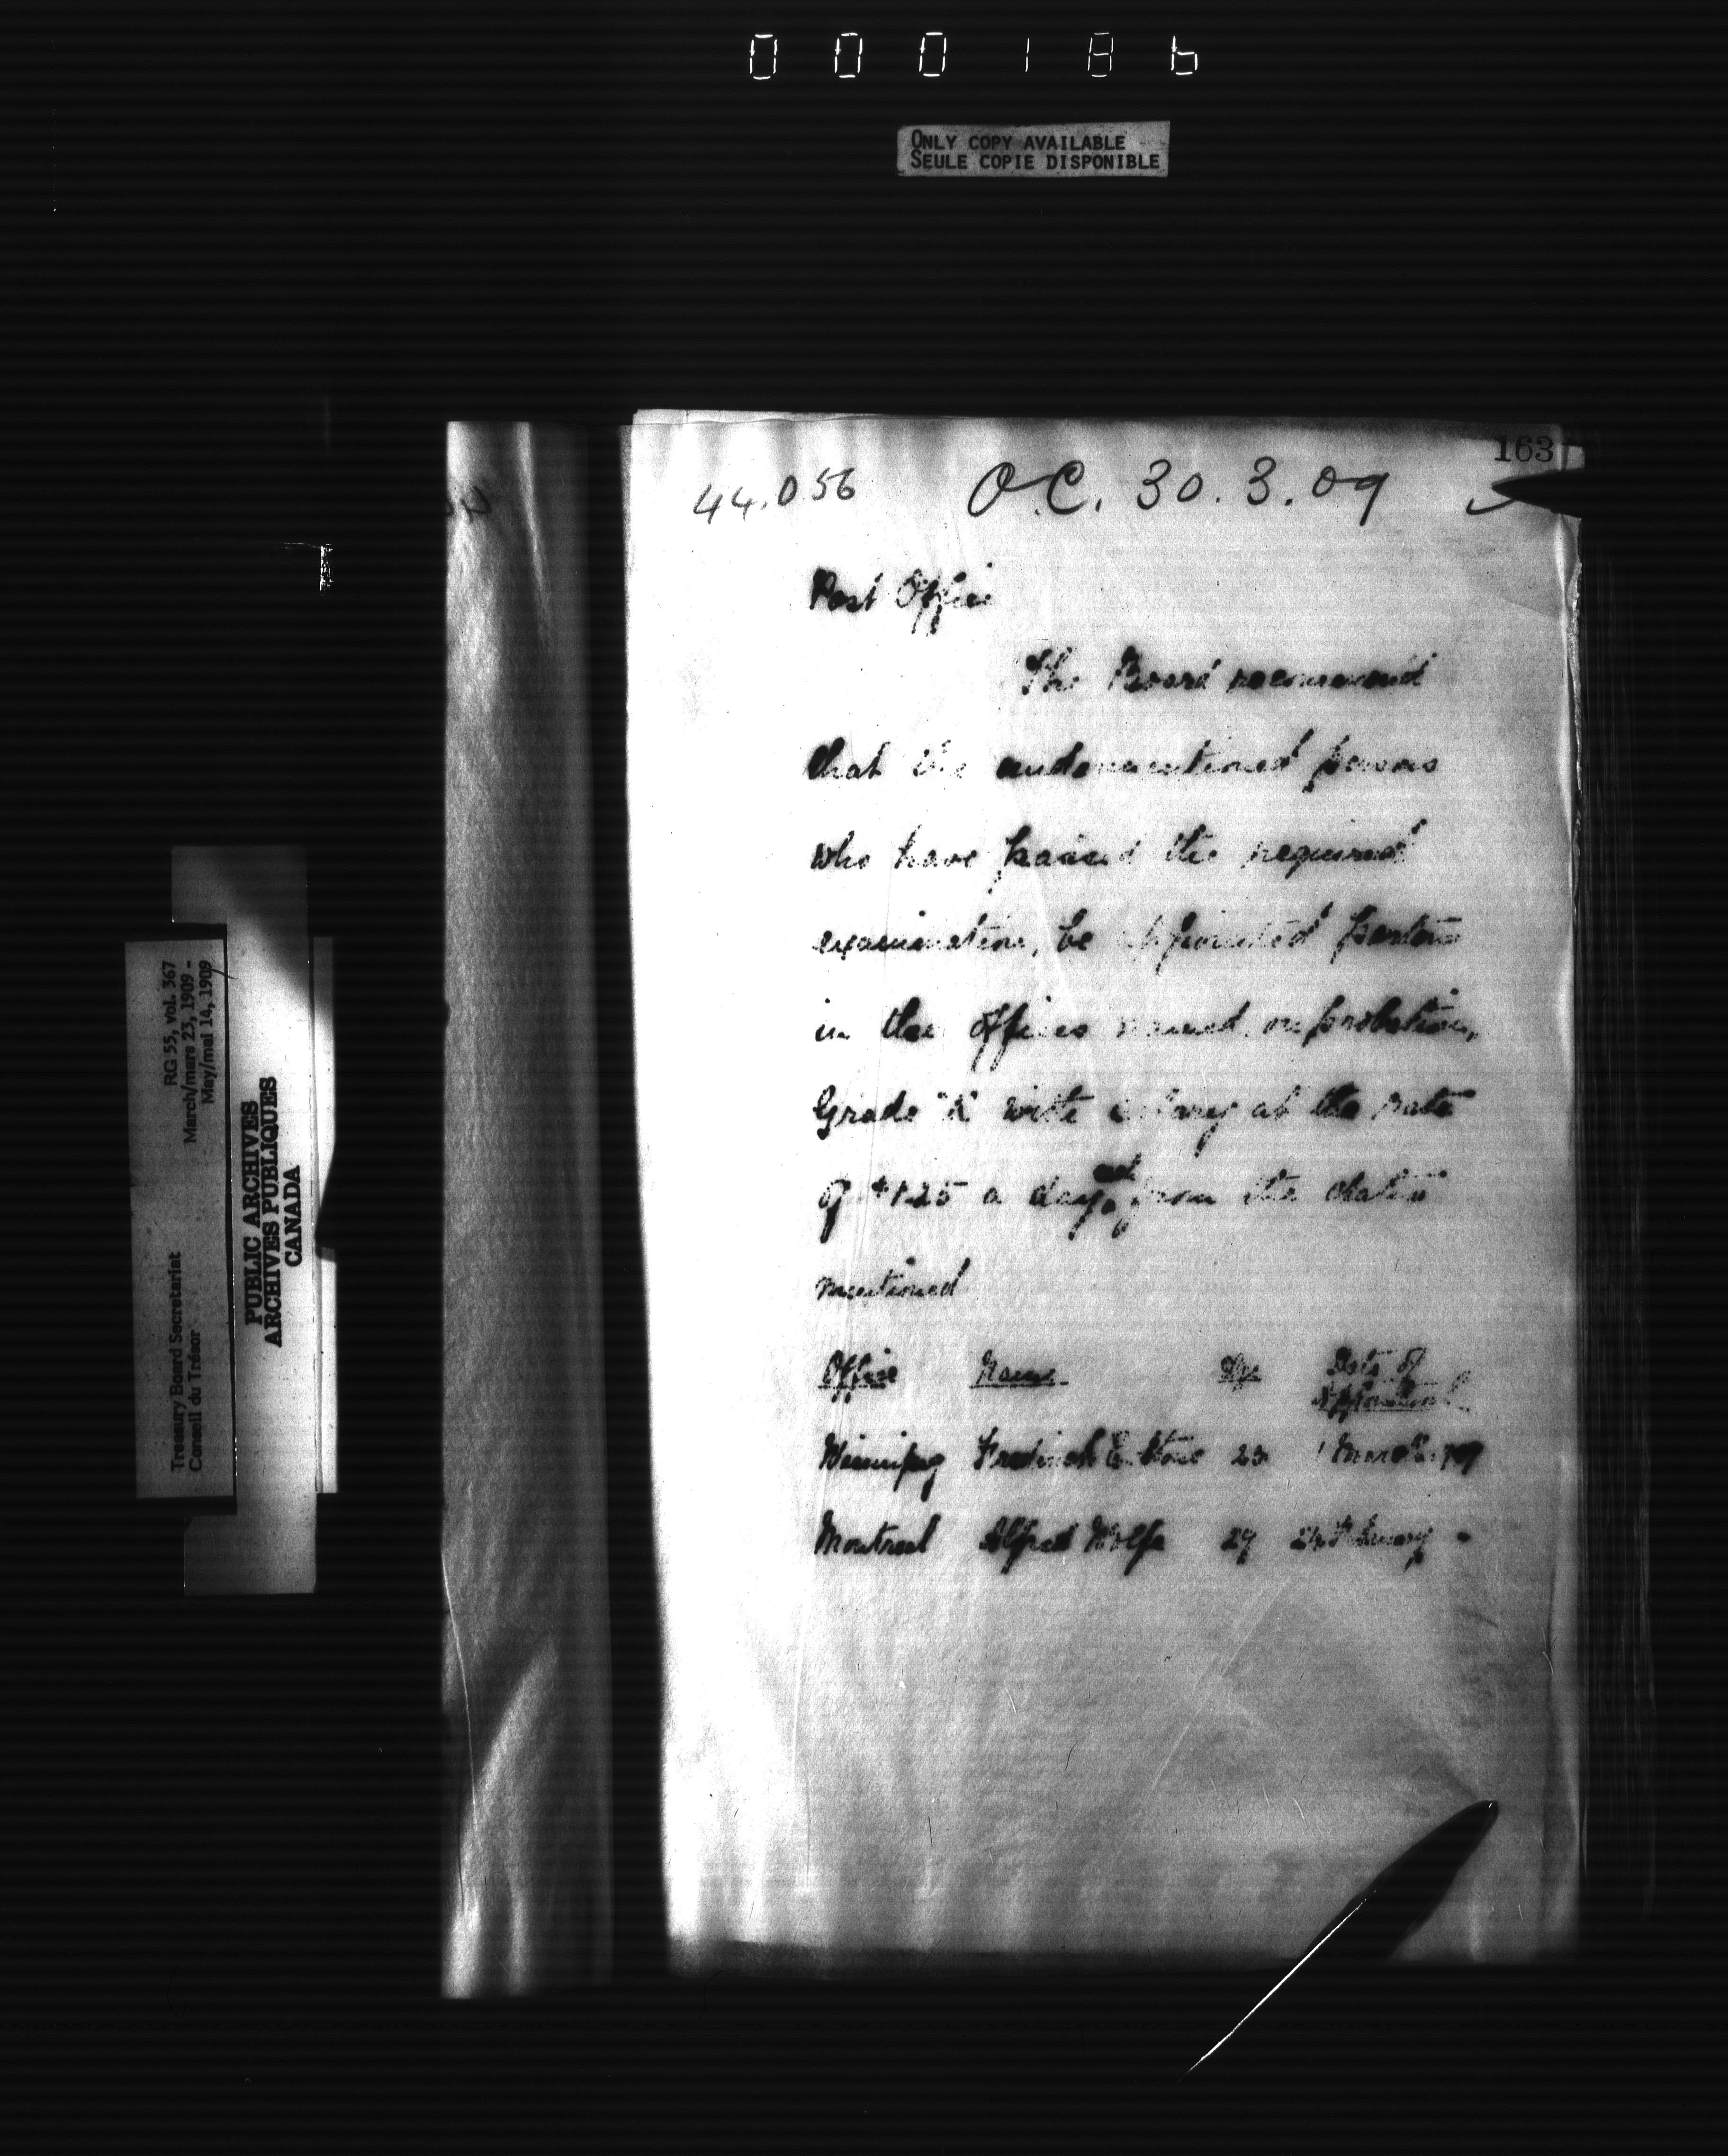 000186
ONLY COPY AVAILABLE
SEULE COPIE DISPONIBLE
163
44.056 O.C. 30.3.09
Post Office
The Board recommend
that the undermentioned persons
who have passed the required
examination, be appointed porters
in the offices named on probation,
Grade "A" with salary at the rate
of $1.25 a day, from the dates
mentioned
Office Name Age Date of
Appointment
Winnipeg Frederick E. Stone 23 1 March 09
Montreal Alfred Wolfe 29 February "
RG 55, vol. 367
March/mars 23, 1909 -
May/mai 14, 1909
Treasury Board Secretariat
Conseil du Trésor
PUBLIC ARCHIVES
ARCHIVES PUBLIQUES
CANADA